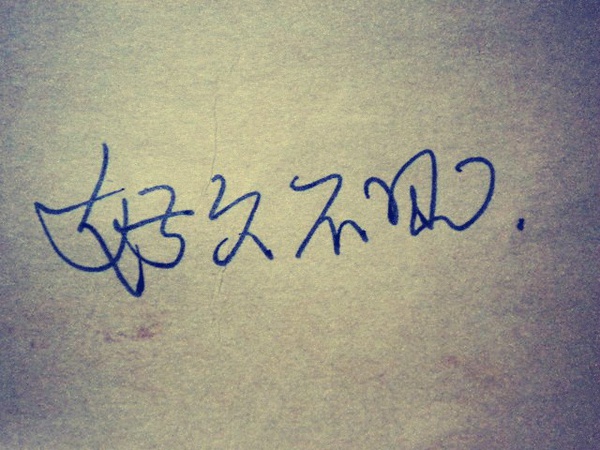 好久不见.